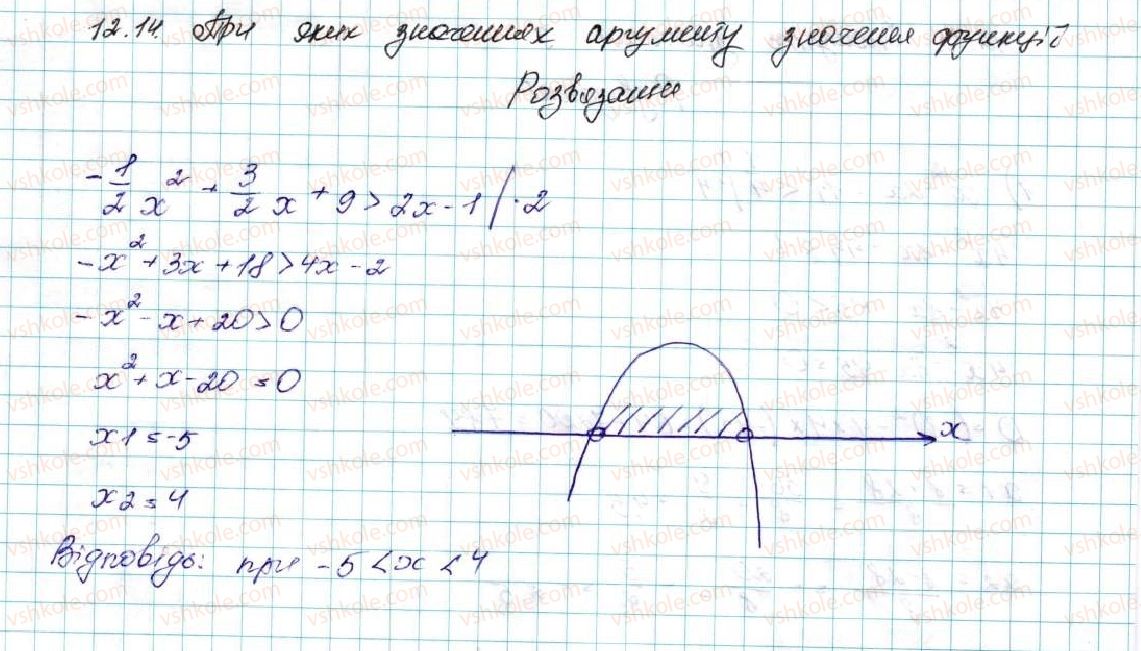 12.14. При яких значеннях аргументу значення функції
Розвязання
-1/2 x² + 3/2 x + 9 > 2x - 1 / · 2
-x² + 3x + 18 > 4x - 2
-x² - x + 20 > 0
x² + x - 20 = 0
x1 = -5
x
x2 = 4
Відповідь: при -5 < x < 4